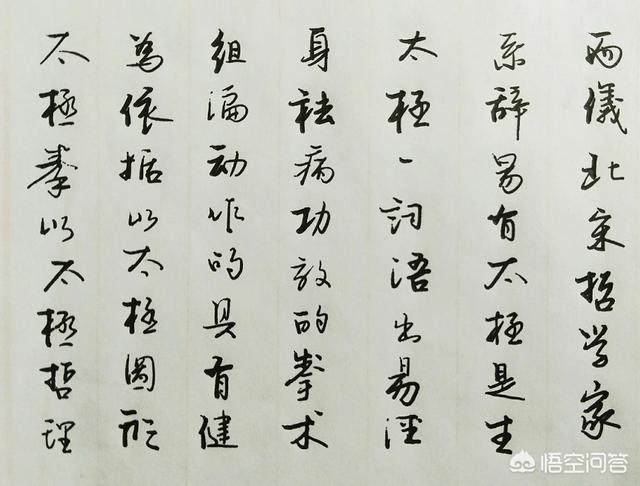 太極拳以太極哲理
為依据以太极圖形
组编动作的具有健
身祛病功效的拳术
太极一词语出易经
系辞易有太极是生
两儀北宋哲学家
悟空问答